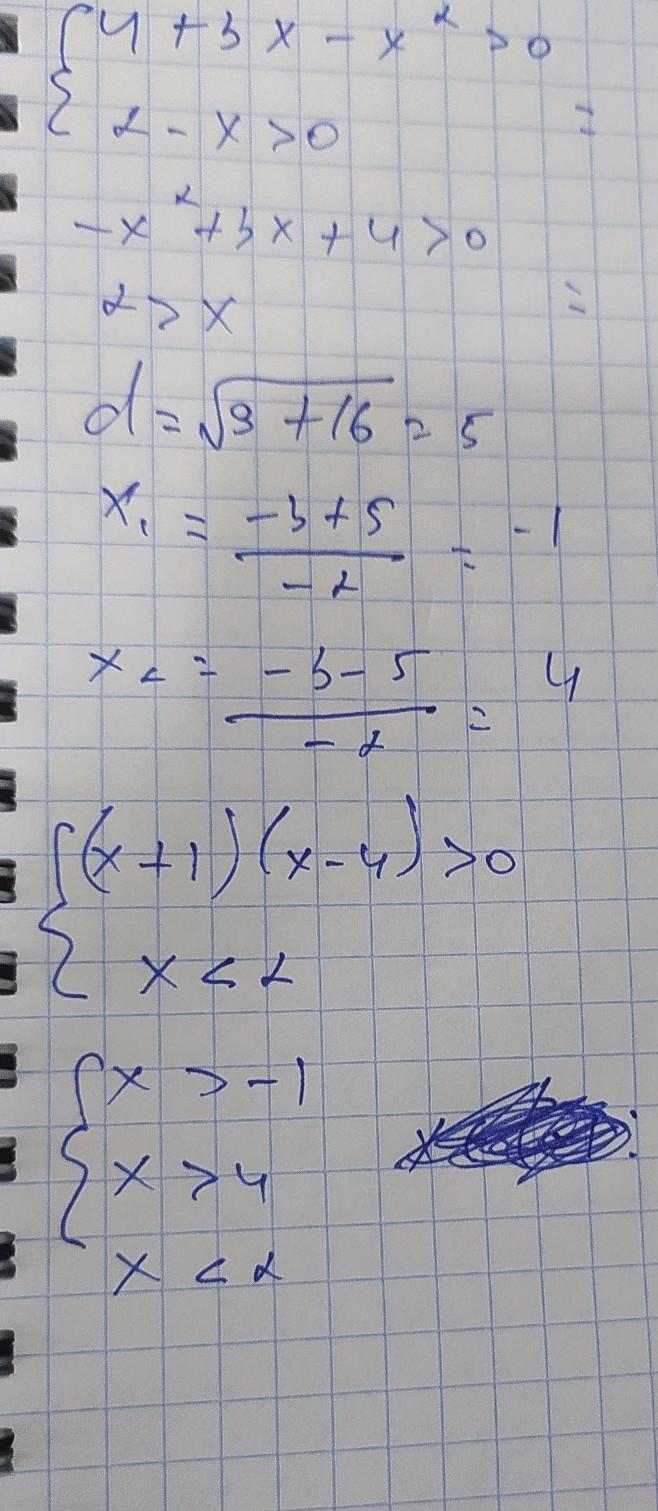 { 4 + 3x - x² > 0
2 - x > 0 =
-x² + 3x + 4 > 0
2 > x =
d = √9 + 16 = 5
x₁ = (-3 + 5)/(-2) = -1
x₂ = (-3 - 5)/(-2) = 4
{ (x + 1)(x - 4) > 0
x < 2
{ x > -1
x > 4
x < 2